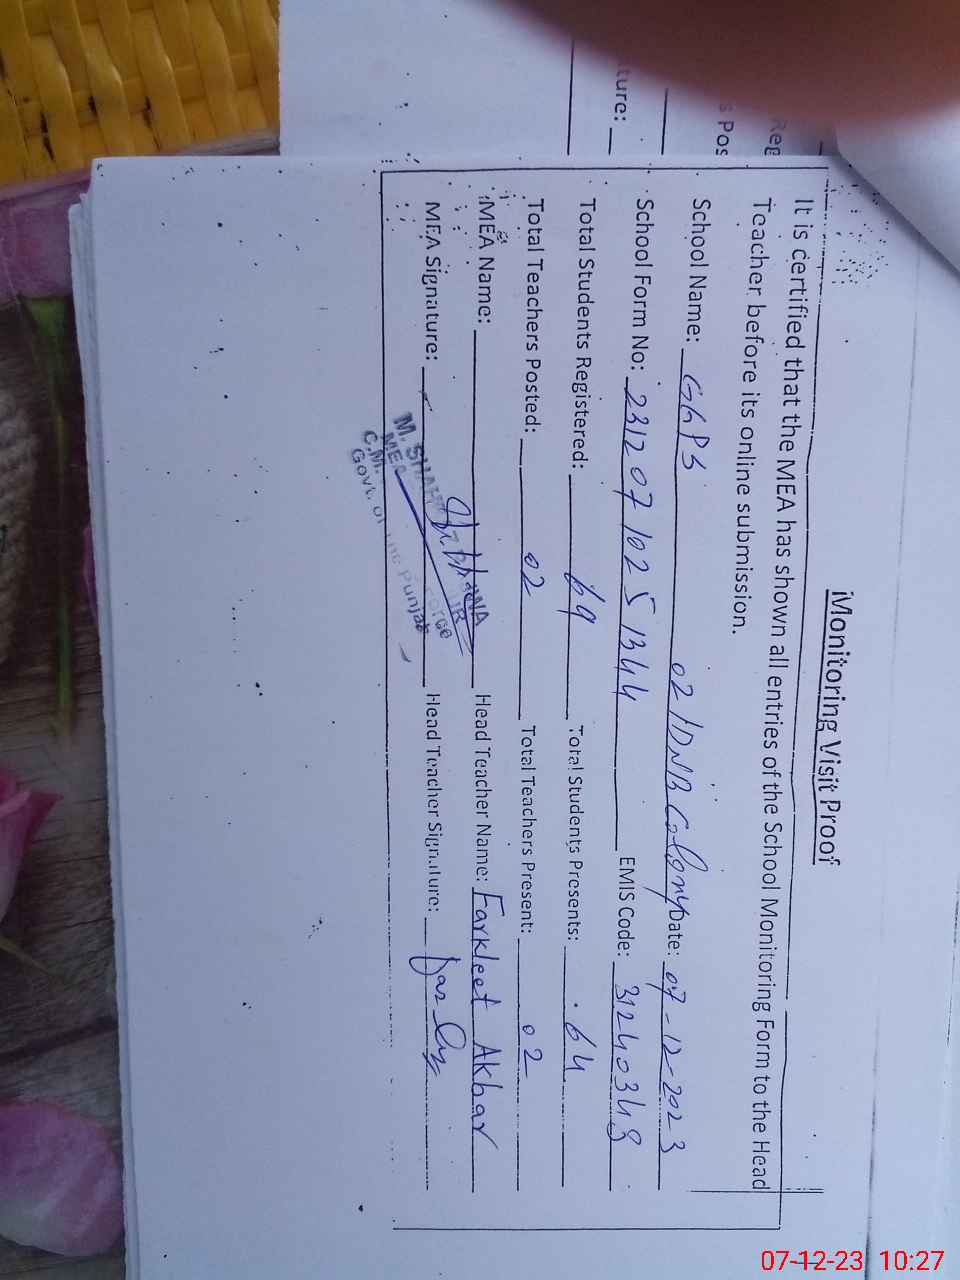 Monitoring Visit Proof
It is certified that the MEA has shown all entries of the School Monitoring Form to the Head
Teacher before its online submission.
School Name: GGPS 02/DNB Colony Date: 07-12-2023
School Form No: 2312071025 1344 EMIS Code: 31240348
Total Students Registered: 69 Total Students Presents: 64
Total Teachers Posted: 02 Total Teachers Present: 02
MEA Name: Head Teacher Name: Farkleet Akbar
MEA Signature: Head Teacher Signature:
MEA
C.M.
Govt. of the Punjab
ture:
s Pos
Reg
07-12-23 10:27